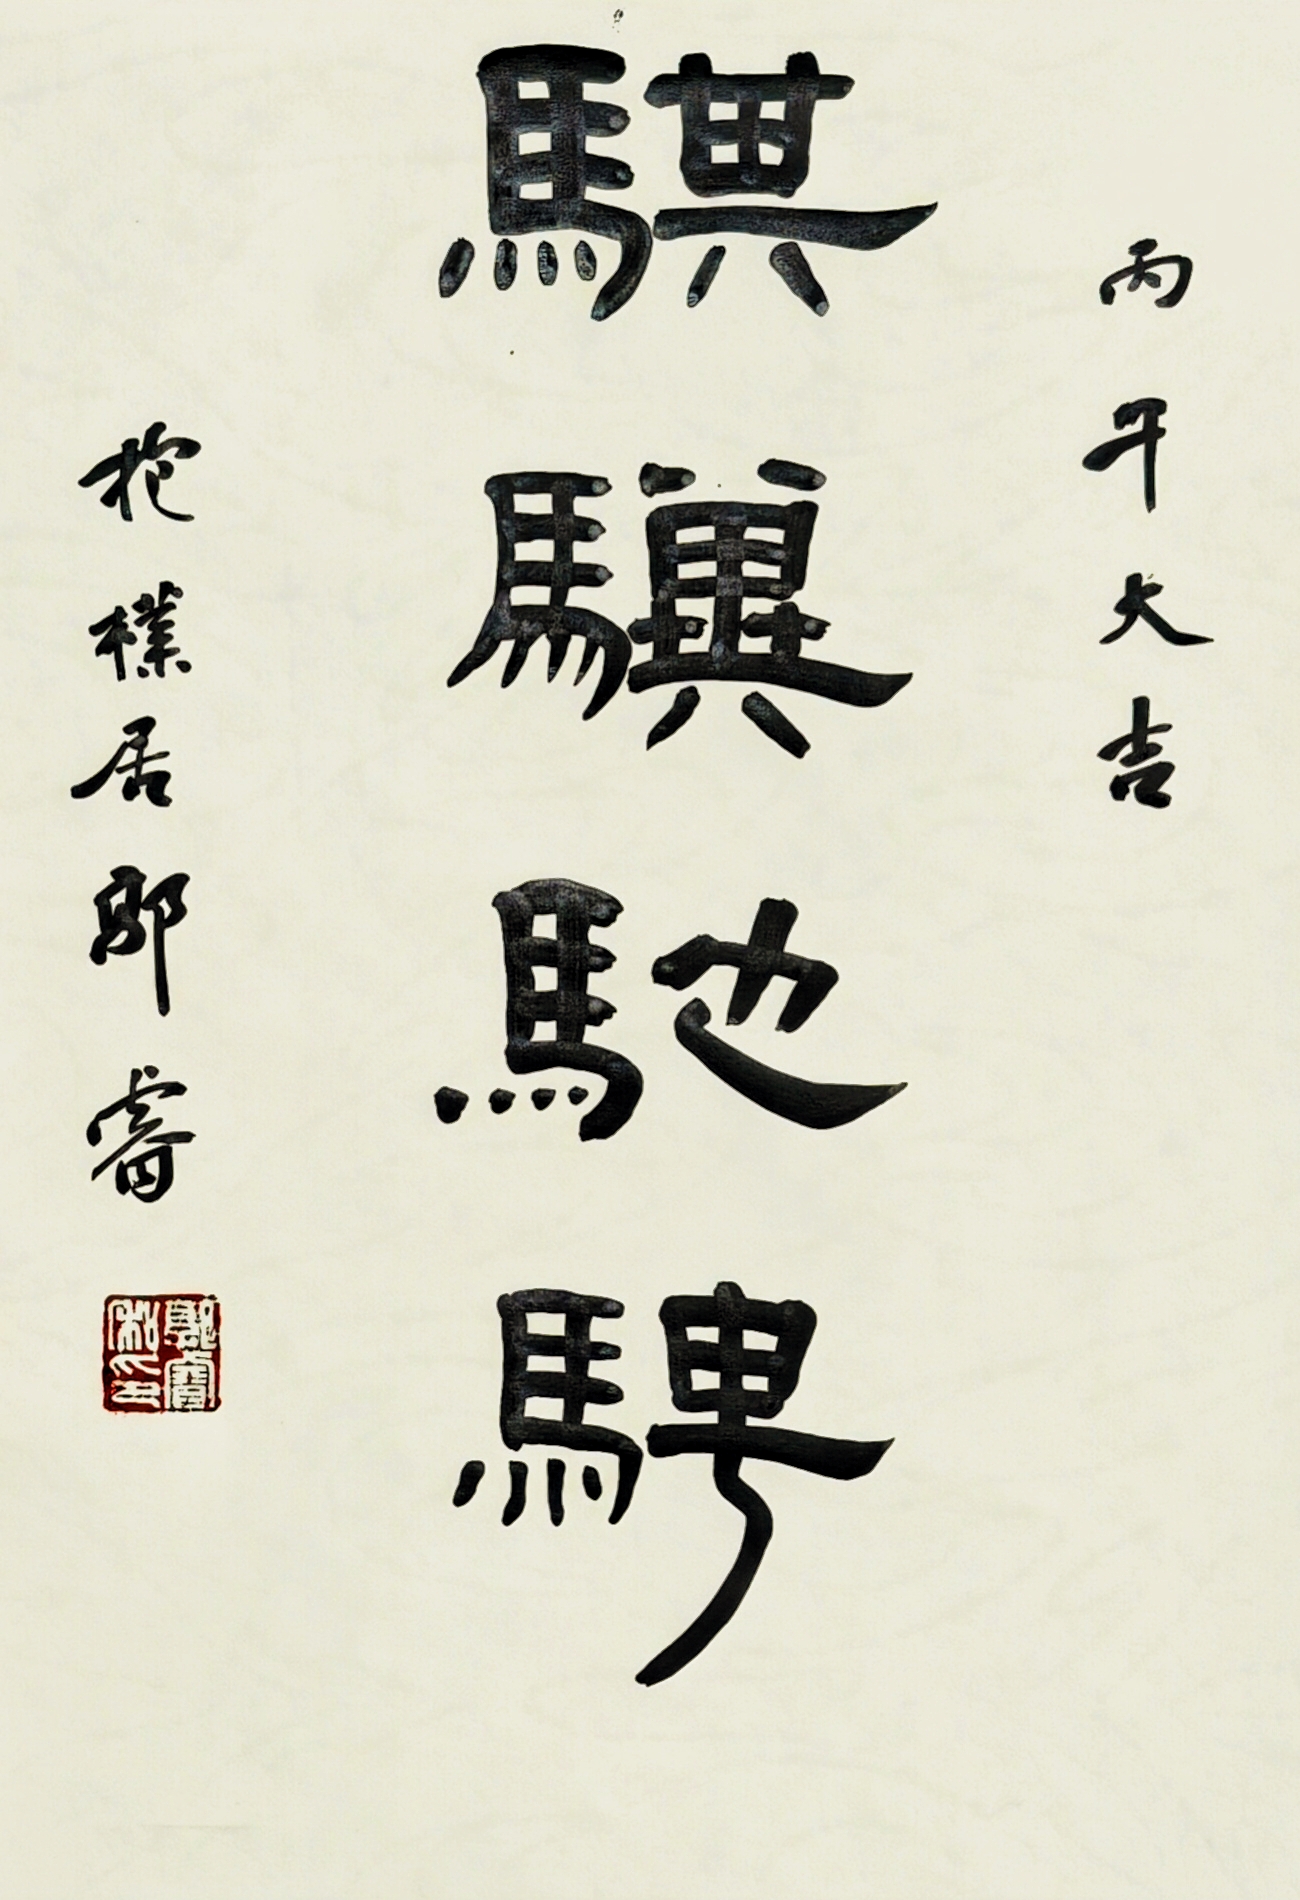 丙午大吉
騏驥馳騁
抱樸居睿
睿
私印